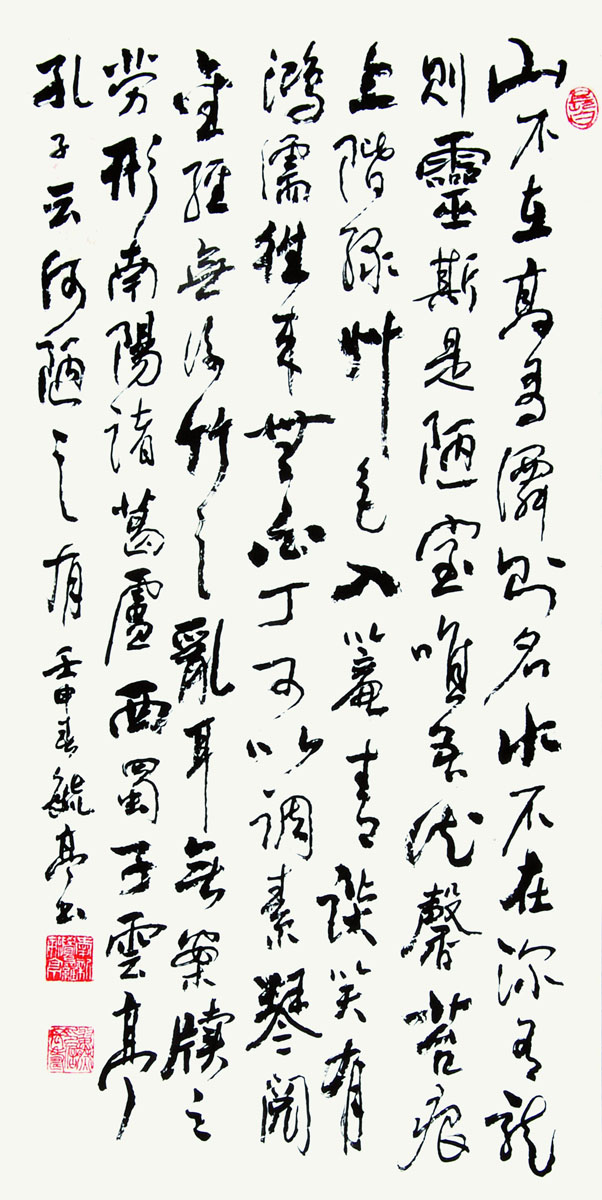 山不在高有僊則名水不在深有龍
則靈斯是陋室唯吾德馨苔痕
上階綠艸色入簾青談笑有
鴻儒往來無白丁可以調素琴閱
金經無絲竹之亂耳無案牘之
勞形南陽諸葛廬西蜀子雲亭
孔子云何陋之有 壬申春毓亭书